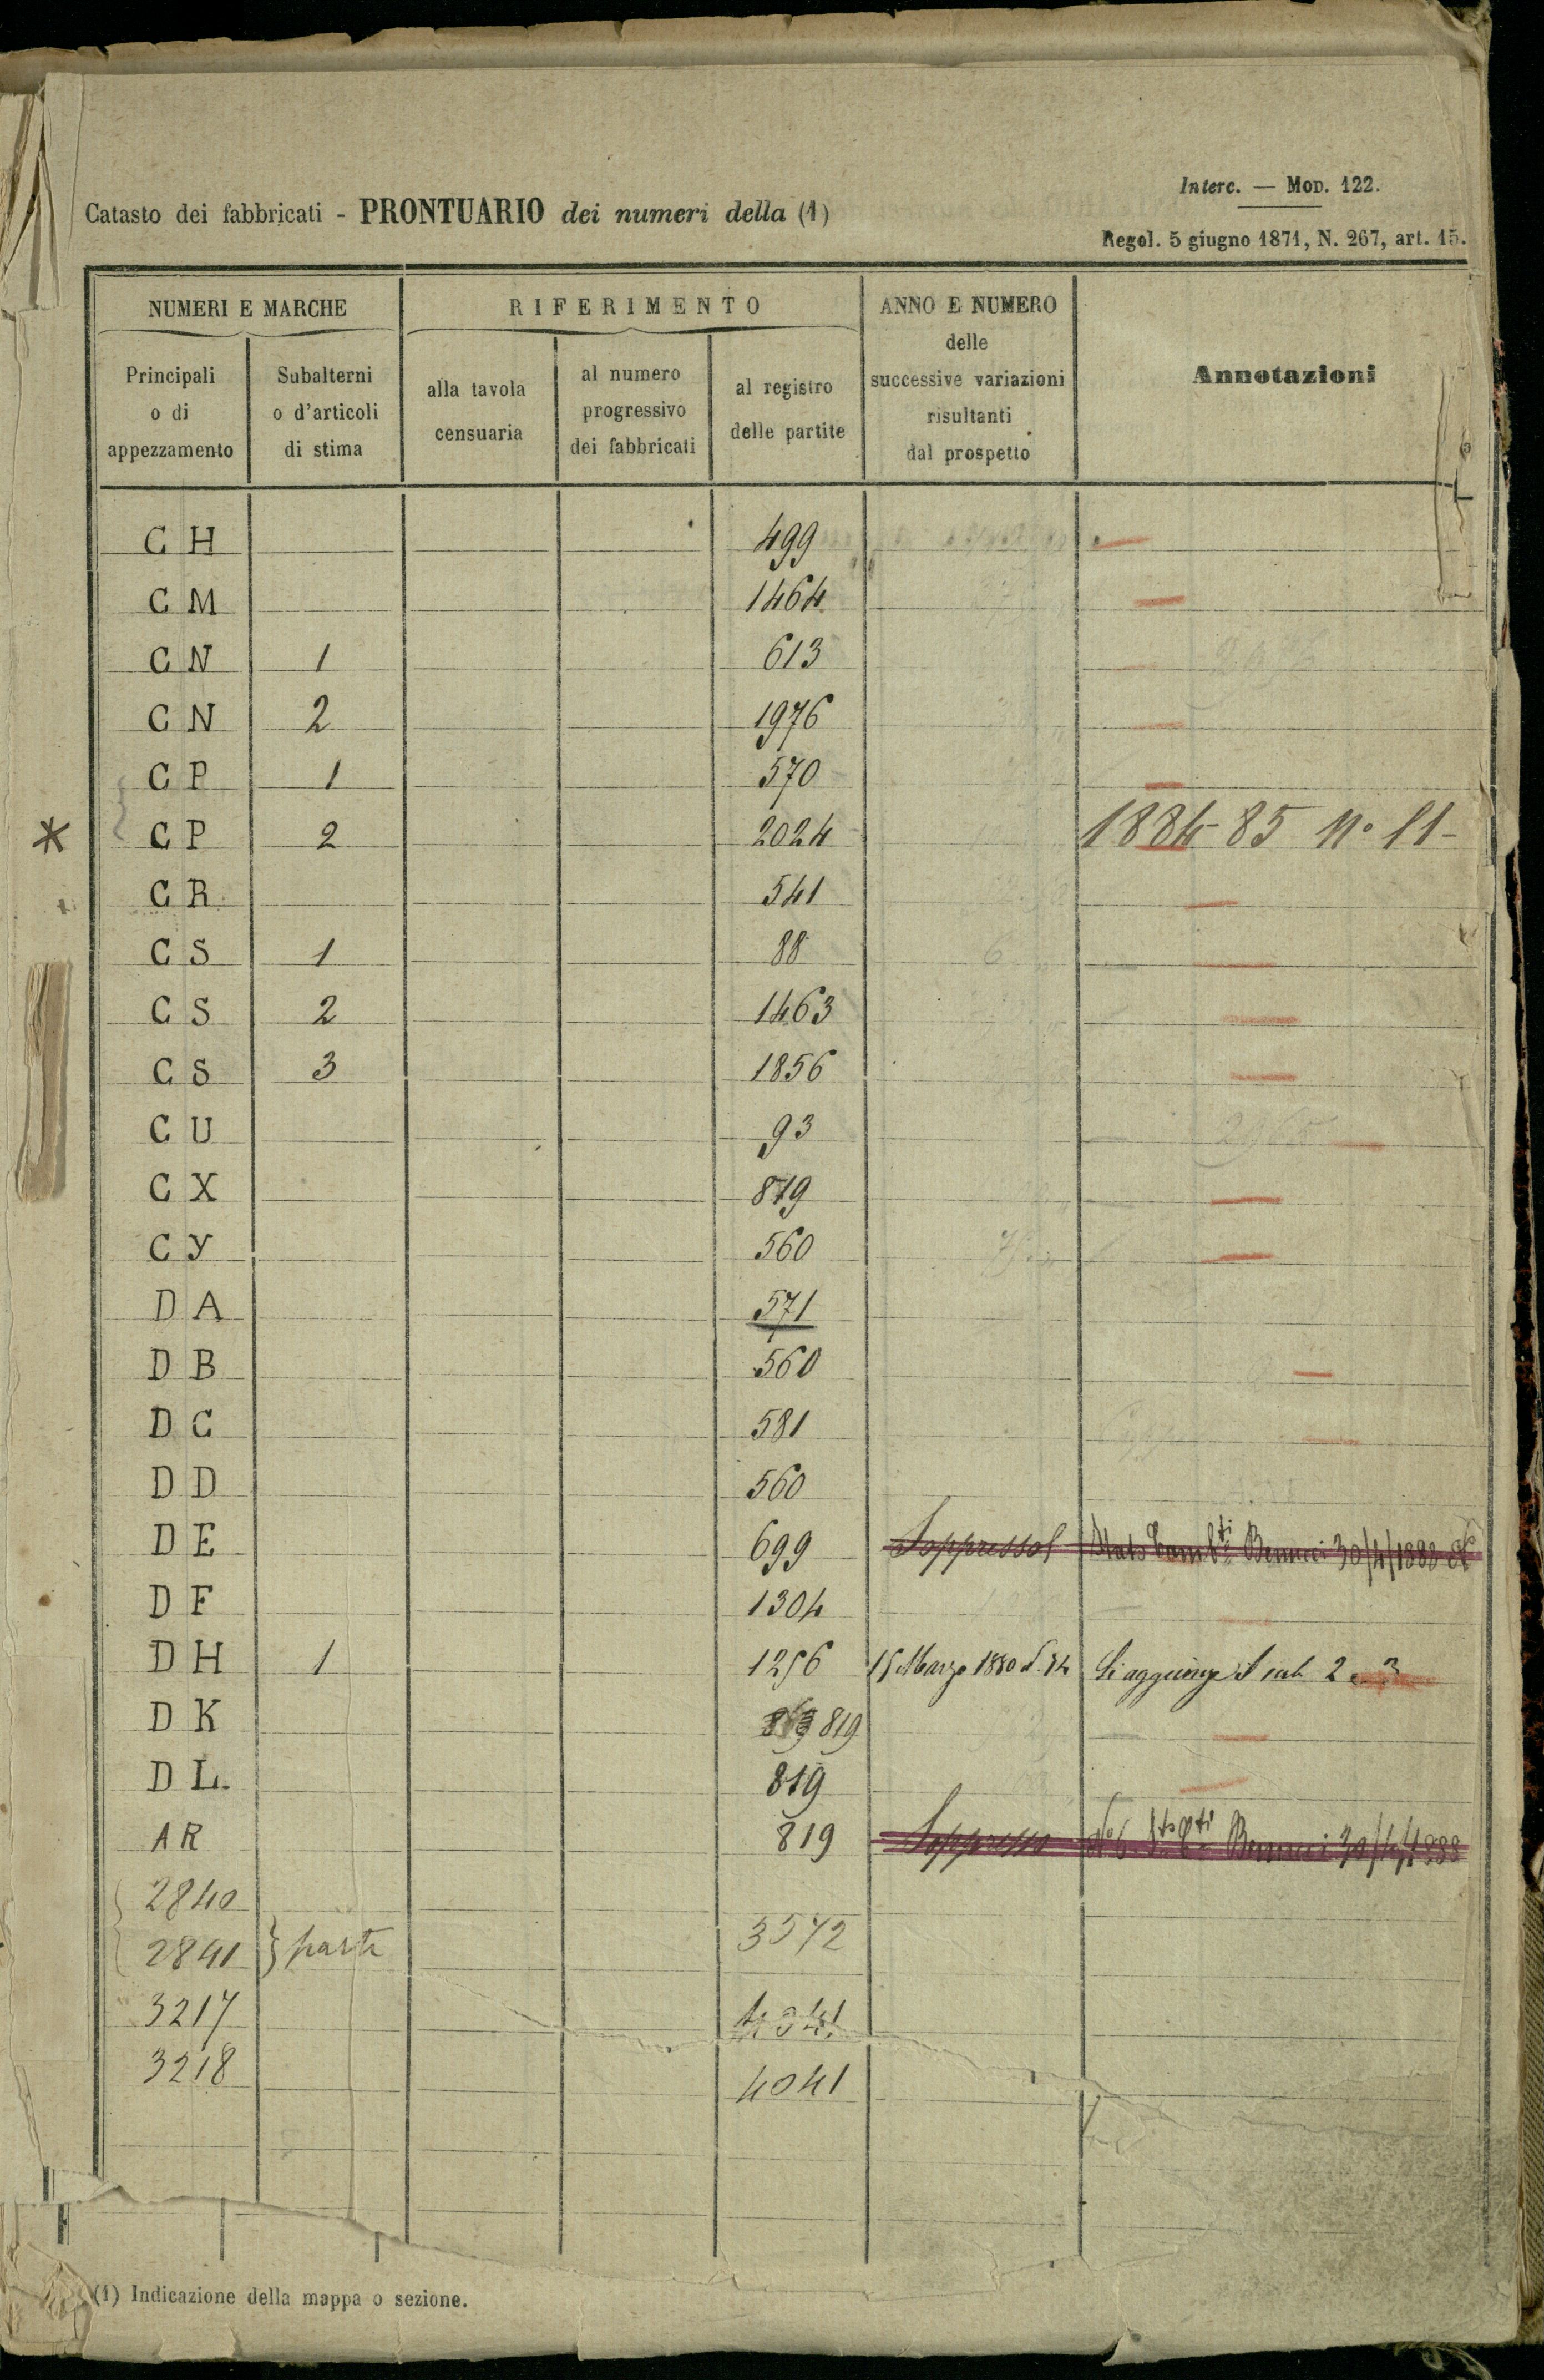 Interc. — Mod. 122.
Catasto dei fabbricati - PRONTUARIO dei numeri della (1)
Regol. 5 giugno 1871, N. 267, art. 15.
NUMERI E MARCHE RIFERIMENTO ANNO E NUMERO delle successive variazioni risultanti dal prospetto Annotazioni
Principali o di appezzamento Subalterni o d'articoli di stima alla tavola censuaria al numero progressivo dei fabbricati al registro delle partite
C H 499
C M 1464
C N 1 613
C N 2 1976
C P 1 570
* C P 2 2024 1884-85 n° 11-
C R 541
C S 1 88
C S 2 1463
C S 3 1856
C U 93
C X 819
C Y 560
D A 571
D B 560
D C 581
D D 560
D E 699 Stato Bennici 30/4/1888
D F 1304
D H 1 1256 15 Marzo 1880 Si aggiunge il sub 2 e 3
D K 819
D L. 819
A R 819 Soppresso Bennici 30/4/1888
2840
2841 } parte 3572
3217 4041
3218 4041
(1) Indicazione della mappa o sezione.